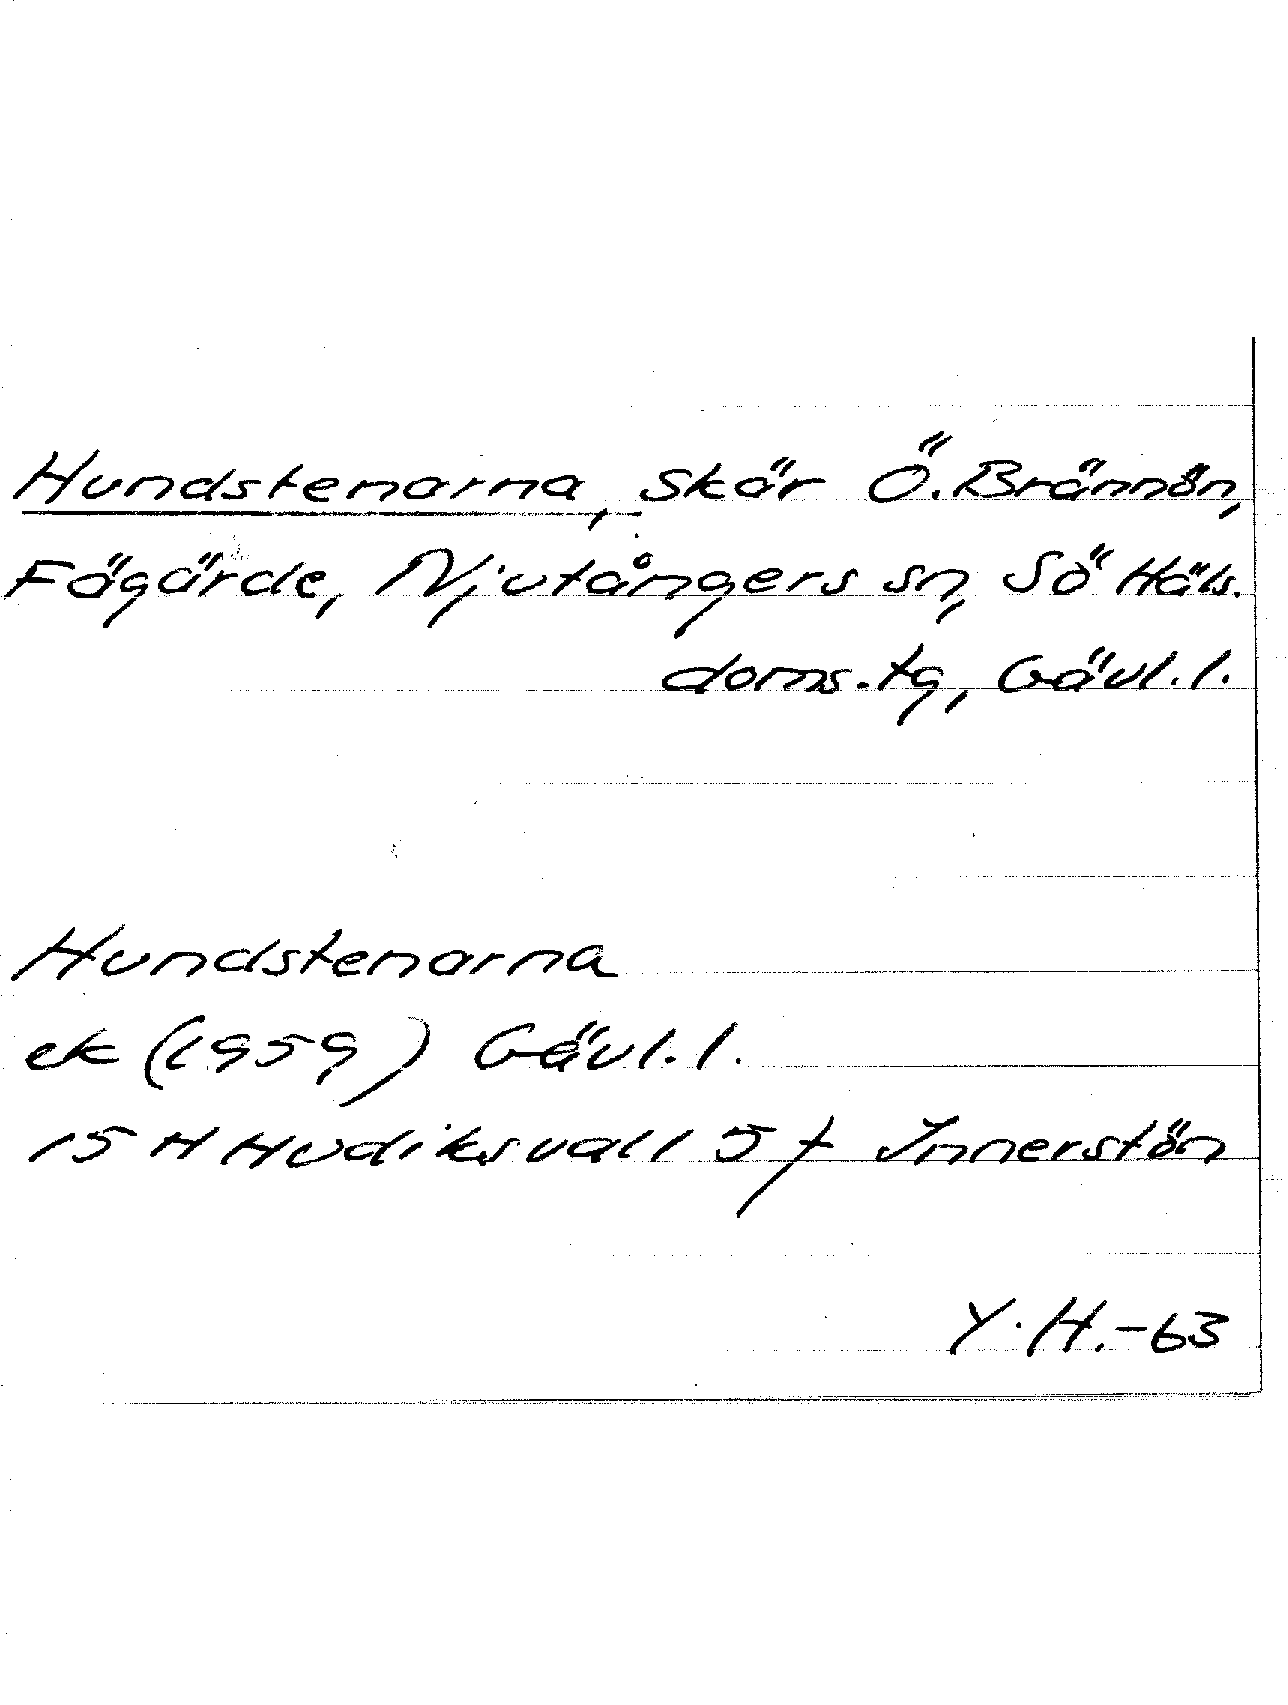 Hundstenarna, skär Ö. Brännön,
Fägärde, Njutångers sn, Sö Häls.
doms.tg, Gävl. l.
Hundstenarna
ek (1959) Gävl. l.
15 H Hudiksvall 5 f Innerstön
Y. H. -63